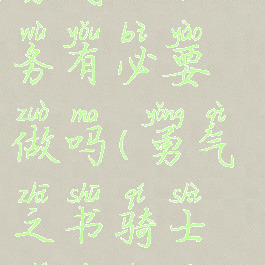 wù yǒu bì yào
务有必要
zuò ma yǒng qì
做吗(勇气
zhī shū qí shì
之书骑士